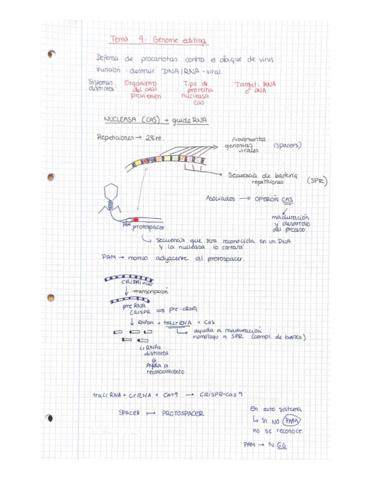 Tema 9: Genome editing
Defensa de procariotas contra el ataque de virus
Función: destruir DNA/RNA viral
Sistemas distintos
Organismo del cual provienen
Tipo de proteína nucleasa cas
Target: RNA o DNA
NUCLEASA (CAS) + guide RNA
Repeticiones → 28 nt.
fragmentos genomas virales (spacers)
Secuencia de bacteria repeticiones (SPR)
Asociados → OPERÓN CAS
maduración y desarrollo del proceso.
PAM protospacer
Secuencia que será reconocida en un DNA y la nucleasa lo cortará
PAM → motivo adyacente al protospacer.
CRISPR
transcripción
pre RNA CRISPR ⇒ pre-crRNA
RNAsa + tracrRNA + Cas
ayuda a maduración
homólogo a SPR (compl. de bases)
crRNAs distintos
Ayuda a reconocimiento
tracrRNA + crRNA + Cas9 → CRISPR-cas9
SPACER ↔ PROTOSPACER
En este sistema
↳ si NO PAM
no se reconoce.
PAM → NGG